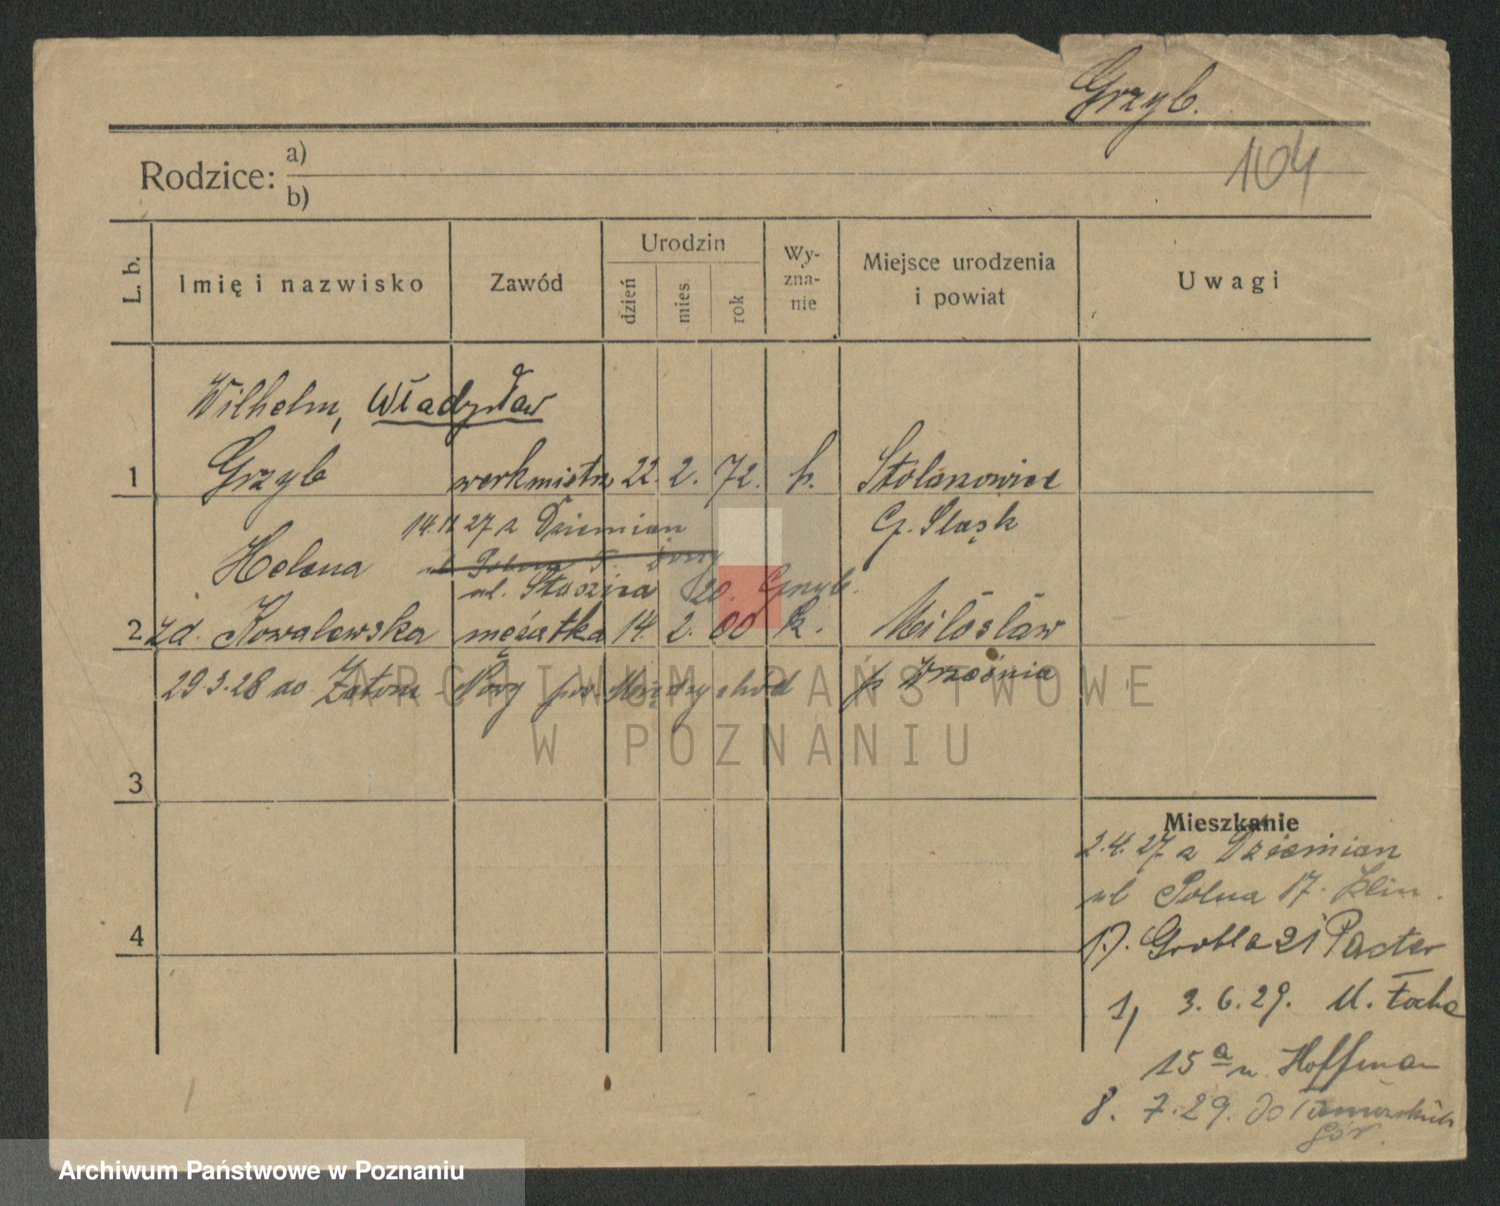 Grzyb.
104
Rodzice: a)
b)
L. b.
Imię i nazwisko
Zawód
Urodzin
dzień
mies.
rok
Wy-
zna-
nie
Miejsce urodzenia
i powiat
Uwagi
Wilhelm, Władysław
1 Grzyb werkmistrz 22. 2. 72. k.
14.11.27 z Dziemian Śląsk
Helena
ul. 20. Grzyb.
2 zd. Kowalewska mężatka 14. 2. 00 k. Miłosław
29.3.28 do Zatom - Nowy pow. Międzychód p. Września
ARCHIWUM PAŃSTWOWE
W POZNANIU
3
Mieszkanie
2.4.27. z Dziemian
ul Polna 17. Klin.
4
17. Grobla 21 Pacter
1, 3.6.29. Focha
15a u. Hoffman
8. 7. 29. do
Gór.
Archiwum Państwowe w Poznaniu